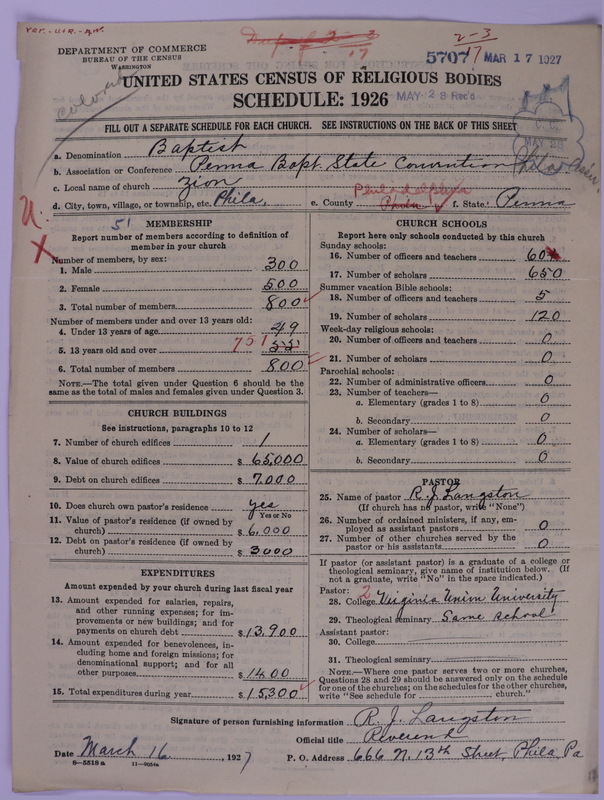 DEPARTMENT OF COMMERCE
BUREAU OF THE CENSUS
WASHINGTON
2-3
17
5707
17
MAR 17 1927
UNITED STATES CENSUS OF RELIGIOUS BODIES
SCHEDULE: 1926
MAY 28 Rec'd
Colored
FILL OUT A SEPARATE SCHEDULE FOR EACH CHURCH. SEE INSTRUCTIONS ON THE BACK OF THIS SHEET
a. Denomination Baptist
b. Association or Conference Penna Bapt. State Convention
c. Local name of church Zion
d. City, town, village, or township, etc. Phila,
e. County Philadelphia Phila
f. State: Penna
51
MEMBERSHIP
Report number of members according to definition of
member in your church
Number of members, by sex:
1. Male 300
2. Female 500
3. Total number of members 800
Number of members under and over 13 years old:
4. Under 13 years of age 49
5. 13 years old and over 751
6. Total number of members 800
NOTE.—The total given under Question 6 should be the
same as the total of males and females given under Question 3.
CHURCH BUILDINGS
See instructions, paragraphs 10 to 12
7. Number of church edifices 1
8. Value of church edifices $ 65,000
9. Debt on church edifices $ 7,000
10. Does church own pastor's residence? yes
Yes or No
11. Value of pastor's residence (if owned by
church) $ 6,000
12. Debt on pastor's residence (if owned by
church) $ 3000
EXPENDITURES
Amount expended by your church during last fiscal year
13. Amount expended for salaries, repairs,
and other running expenses; for im-
provements or new building; and for
payments on church debt $ 13,900
14. Amount expended for benevolences, in-
cluding home and foreign missions; for
denominational support; and for all
other purposes $ 1400
15. Total expenditures during year $ 15,300
CHURCH SCHOOLS
Report here only schools conducted by this church
Sunday schools:
16. Number of officers and teachers 60
17. Number of scholars 650
Summer vacation Bible schools:
18. Number of officers and teachers 5
19. Number of scholars 120
Week-day religious schools:
20. Number of officers and teachers 0
21. Number of scholars 0
Parochial schools:
22. Number of administrative officers 0
23. Number of teachers—
a. Elementary (grades 1 to 8) 0
b. Secondary 0
24. Number of scholars—
a. Elementary (grades 1 to 8) 0
b. Secondary 0
PASTOR
25. Name of pastor R. J. Langston
(If church has no pastor, write "None")
26. Number of ordained ministers, if any, em-
ployed as assistant pastors 0
27. Number of other churches served by the
pastor or his assistants 0
If pastor (or assistant pastor) is a graduate of a college or
theological seminary, give name of institution below. (If
not a graduate, write "No" in the space indicated.)
Pastor: 2
28. College Virginia Union University
29. Theological seminary Same school
Assistant pastor:
30. College
31. Theological seminary
NOTE.—Where one pastor serves two or more churches,
Questions 28 and 29 should be answered only on the schedule
for one of the churches; on the schedules for the other churches,
write "See schedule for church."
Signature of person furnishing information R. J. Langston
Official title Reverend
Date March 16, 1927
P. O. Address 666 N. 13th Street, Phila, Pa
8-5518 a 11-9054a